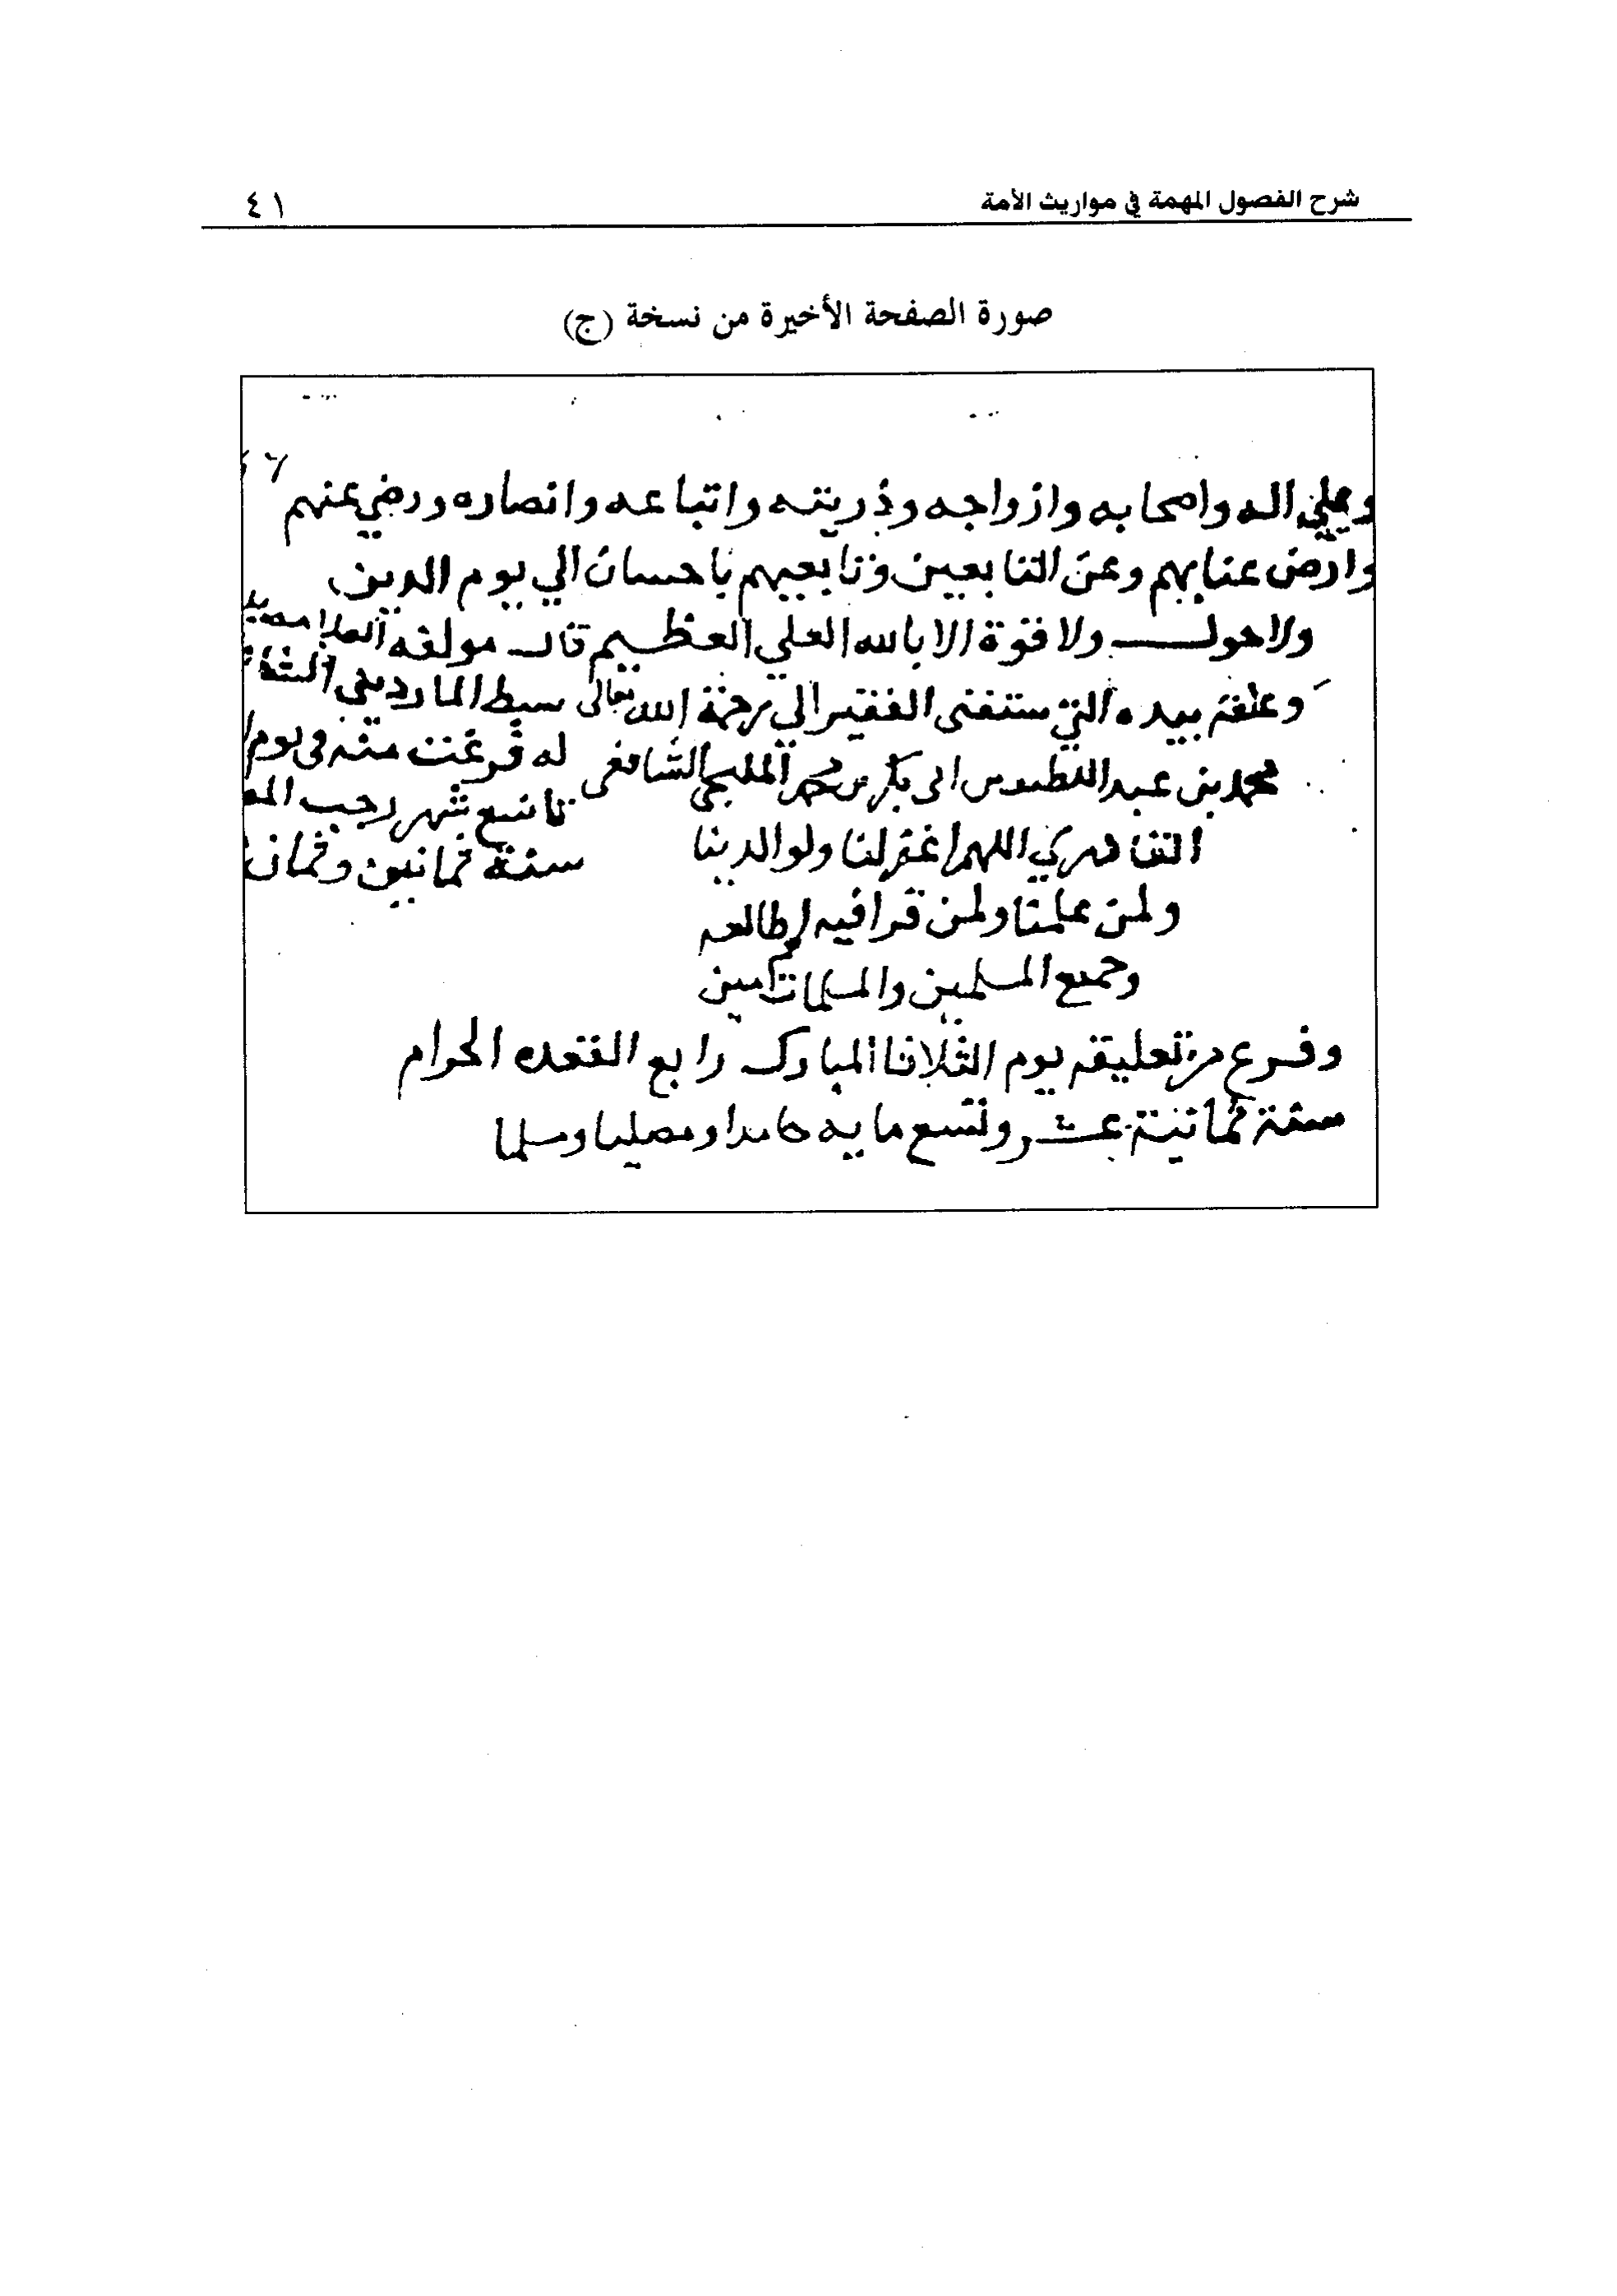 شرح الفصول المهمة في مواريث الأمة
٤١
صورة الصفحة الأخيرة من نسخة (ج)
وعلي اله واصحابه وازواجه وذريته واتباعه وانصاره ورضي عنهم
وارض عنا بهم وعن التابعين وتابعيهم باحسان الي يوم الدين
ولا حول ولا قوة الا بالله العلي العظيم قال مولفه العلامه
وعلقه بيده التي ستفنى الفقير الي رحمة الله تعالى
سبط المارديني
محمد بن عبد اللطيف بن ابي بكر بن محمد المليجي الشافعي
له فرغت منه في يوم
القاهري اللهم اغفر لنا ولوالدينا
تاسع شهر رجب
ولمن علمنا ولمن قرا فيه او طالعه
سنة ثمانين وثمان
وجميع المسلمين والمسلمات امين
وفرغ من تعليقه يوم الثلاثا المبارك رابع القعده الحرام
سنة ثمانية عشر وتسع مايه حامدا ومصليا ومسلما